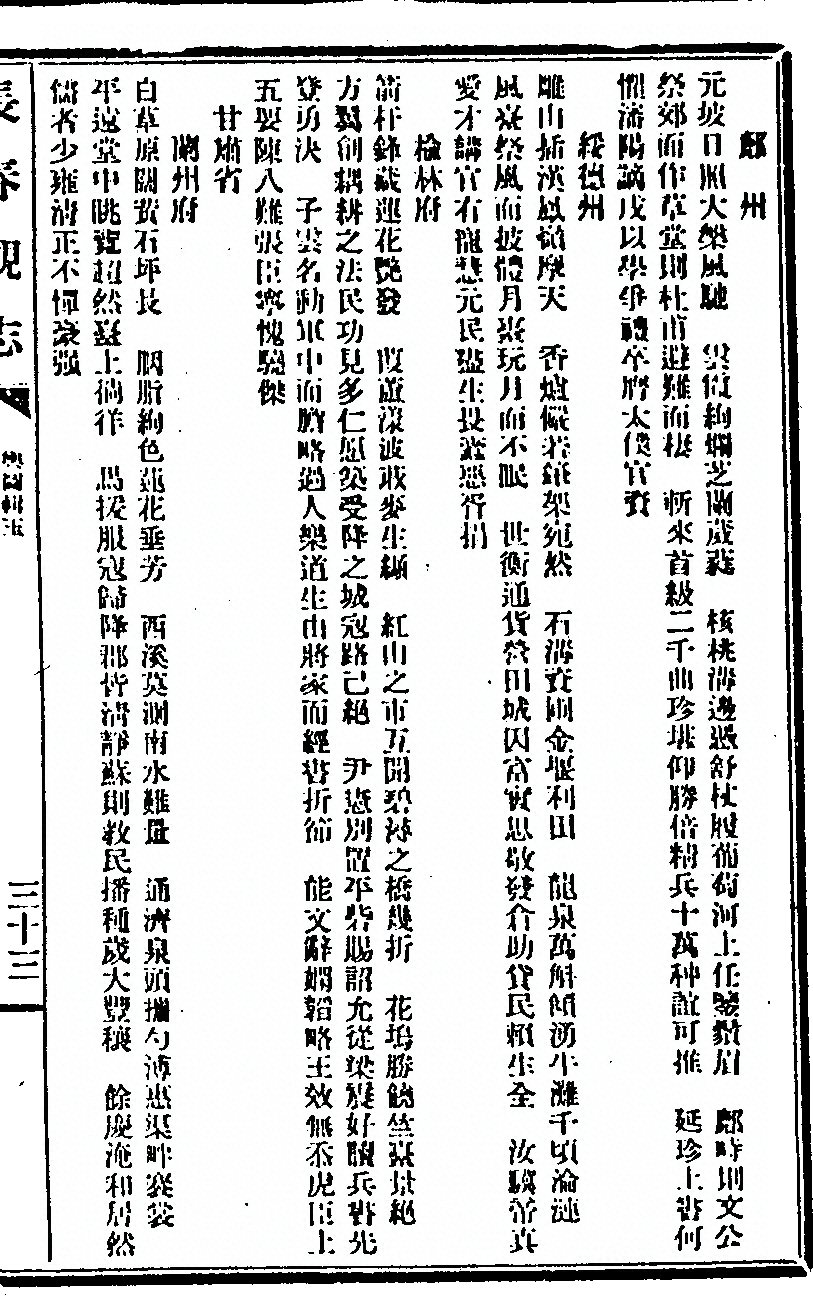 鄜州
元坡日照大樂風馳 雲霞絢爛芝蘭葳蕤 核桃溝邊憑舒杖履葡萄河上任鬆鬚眉 鄜畤則文公
祭郊而作草堂則杜甫避難而棲 斬來首級二千曲珍堪仰勝倍精兵十萬种誼可推 延珍上書何
憚瀋陽謫戍以學爭禮卒膺太僕官資
綏德州
雕山插漢鳳嶺摩天 香爐儼若筆架宛然 石溝資圃金堰利田 龍泉萬斛傾湧牛灘千頃淪漣
風臺祭風而披禮月臺玩月而不眠 世衡通貨營田城因富實思敬發倉助貸民賴生全 汝驥帝真
愛才講官有寵慧元民盡生畏盜惡胥捐
榆林府
箭杆鋒藏蓮花艷發 葭蘆漾波戢麥生纈 紅山之市五開碧綠之橋幾折 花塢勝饒竺臺景絕
方翼創耦耕之法民功見多仁愿築受降之城寇路已絕 尹憲別置平砦賜詔允從梁震好閱兵書先
登勇決 子雲名動軍中而膽略過人樂道生由將家而經書折節 能文辭嫻韜略王效無忝虎臣上
五要陳八難張臣寧愧驍傑
甘肅省
蘭州府
白草原闊黃石坪長 胭脂絢色蓮花垂芳 西溪莫測南水難量 通濟泉頭攜勺溥惠渠畔褰裳
平遠堂中眺覽超然臺上徜徉 馬援服寇歸降郡皆清靜蘇則教民播種歲大豐穰 餘慶淹和居然
儒者少雍清正不憚豪強
長春觀志
輿圖輯玉
三十三